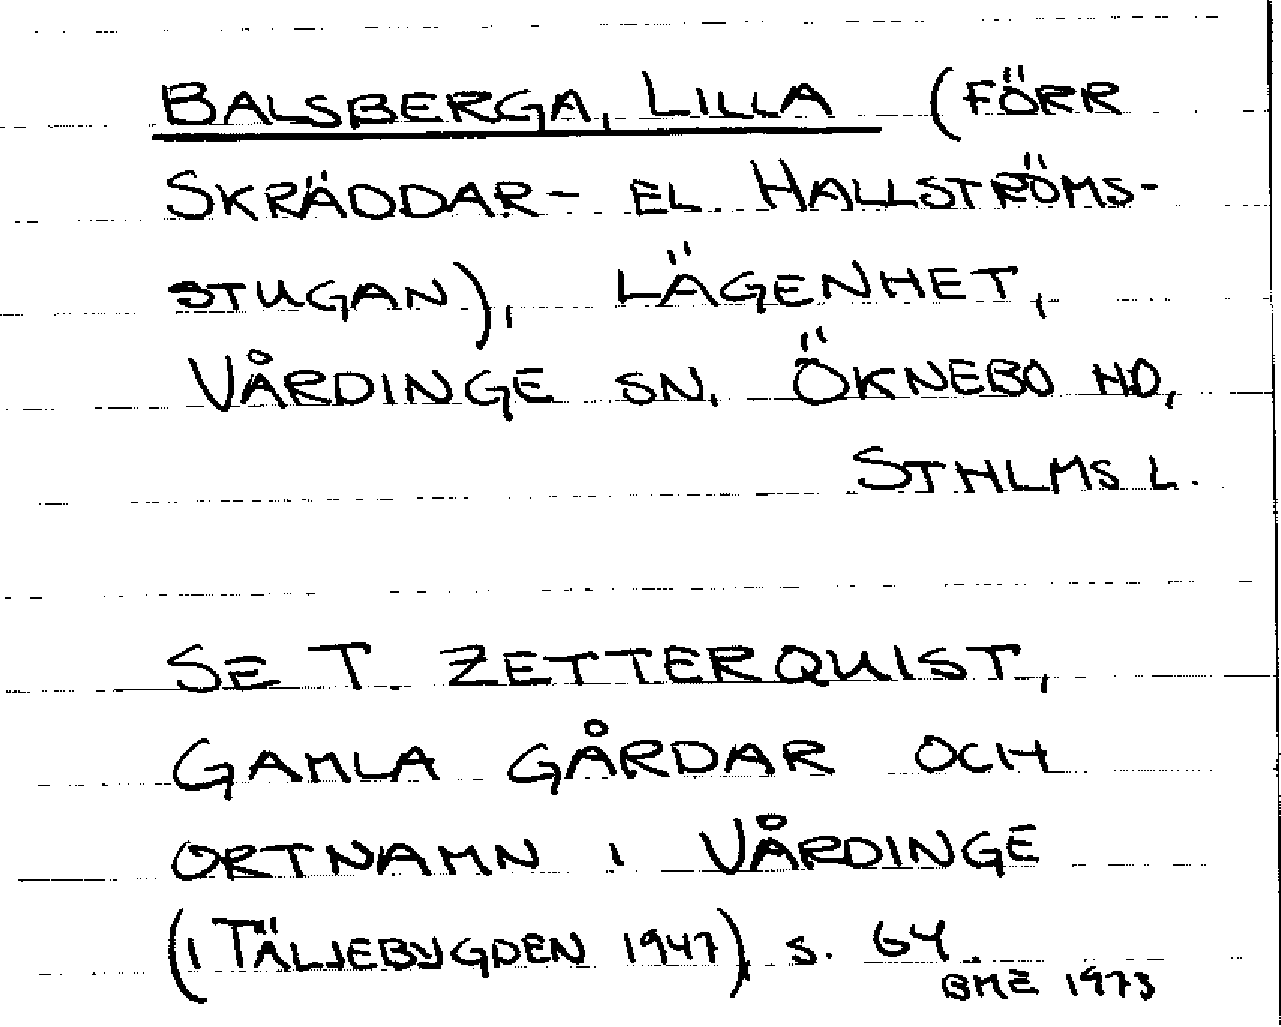 BALSBERGA, LILLA (FÖRR
SKRÄDDAR- EL. HALLSTRÖMS-
STUGAN), LÄGENHET,
VÅRDINGE SN. ÖKNEBO HD,
STHLMS L.
SE T ZETTERQUIST,
GAMLA GÅRDAR OCH
ORTNAMN I VÅRDINGE
(I TÄLJEBYGDEN 1947) S. 64.
BME 1973